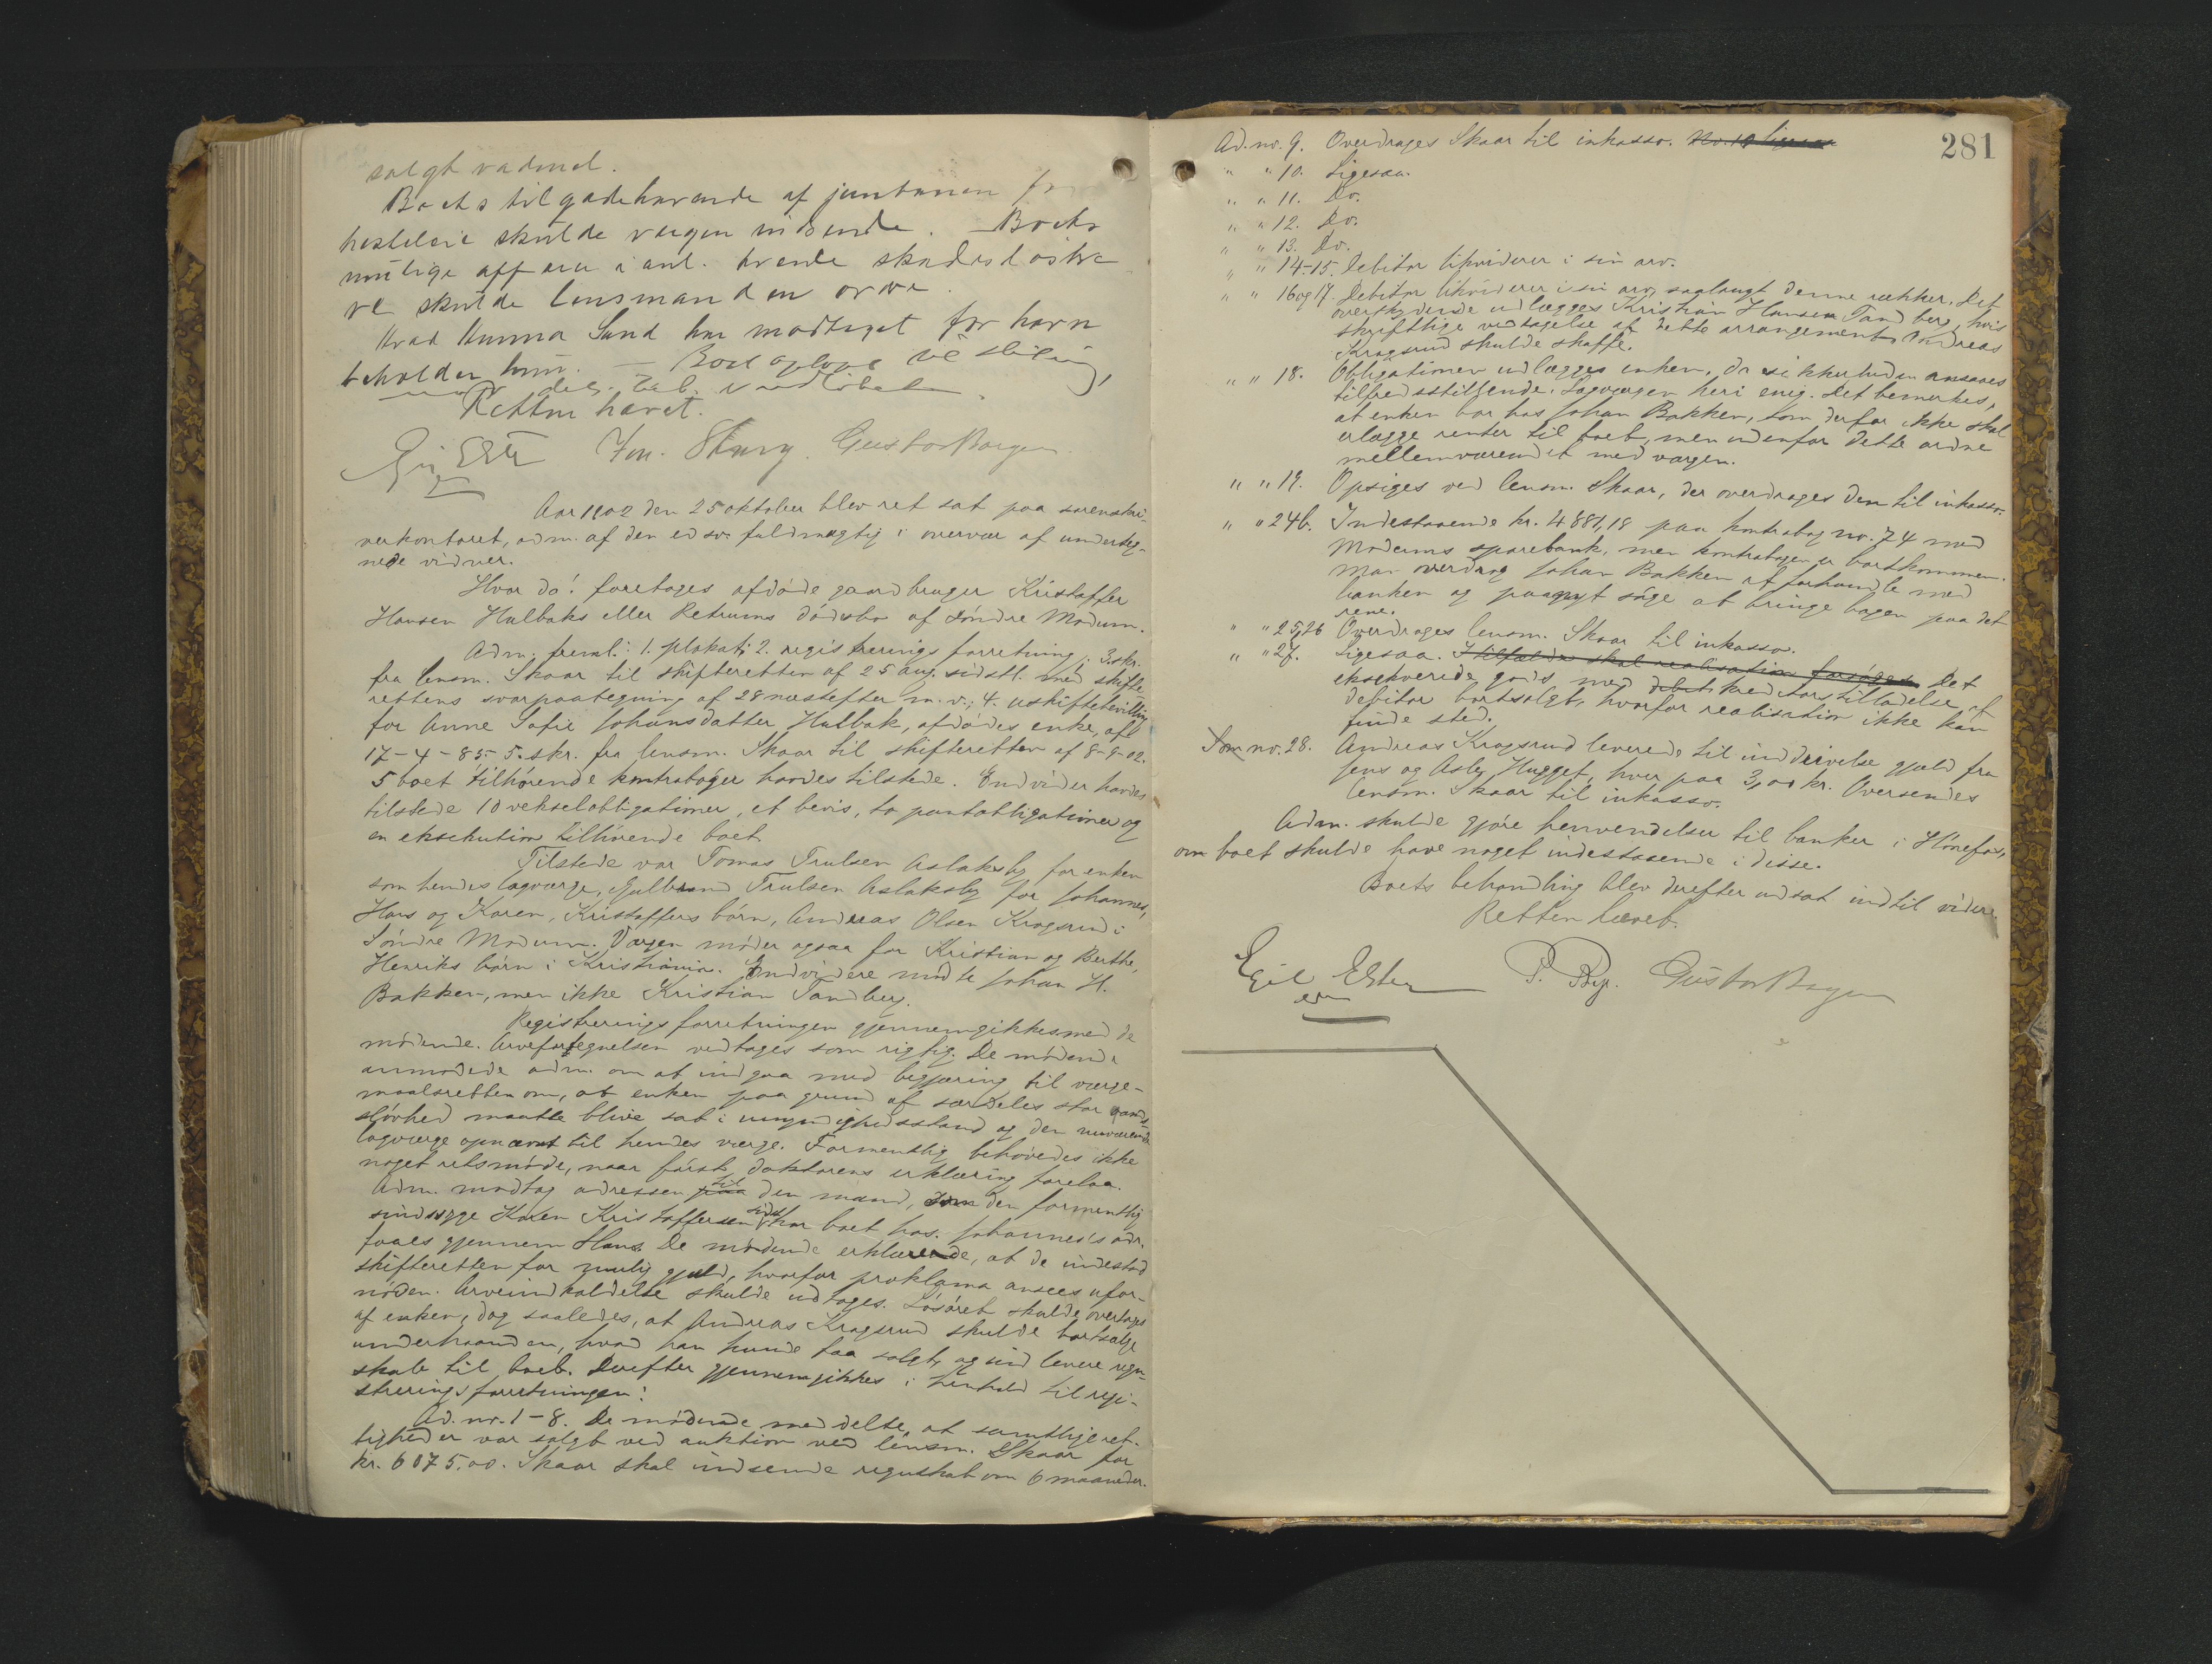 salgt vadmel.
Boets tilgodehavende af
hesteleie skulde vergen indsende. Boets
mulige i anl.
skulde lensmanden
Hvad Sund har modtaget for
beholder
Retten hævet.
Gustav Borgen
Aar 1902 den 25 oktober blev ret sat paa sorenskri-
verkontoret, adm. af den edsv. fuldmægtig i overvær af underteg-
nede vidner.
Hvor da: foretoges afdøde gaardbruger Kristoffer
Hansen Hulbaks eller Retrums dødsbo af søndre Modum.
Adm. freml.: 1. plakat; 2. registreringsforretning; 3. skr.
fra lensm. Skaar til skifteretten af 25 aug. sidstl. med skifte-
rettens svarpaategning af 28 næstefter m.v.; 4. uskiftebevilling
for Anne Sofie Johansdatter Hulbak, afdødes enke, af
17-4-85; 5. skr. fra lensm. Skaar til skifteretten af 8-9-02.
5 boet tilhørende kontrabøger havdes tilstede. Endvider havdes
tilstede 10 vekselobligationer, et bevis, to pantobligationer og
en eksekution tilhørende boet.
Tilstede var Tomas Trulsen Aslaksby for enken
som hendes lagværge, Gulbrand Trulsen Aslaksby for Johannes,
Hans og Karen, Kristoffers børn, Andreas Olsen Kragsrud i
Søndre Modum. Vergen møder ogsaa for Kristian og Berthe,
Henriks børn i Kristiania. Endvidere mødte Johan H.
Bakken, men ikke Kristian Tandberg.
Registreringsforretningen gjennemgikkes med de
mødende. Arvefortegnelsen vedtages som rigtig. De mødende
anmodede adm. om at indgaa med begjæring til verge-
maalsretten om, at enken paa grund af særdeles stor aands-
sløvhed maatte blive sat i umyndighedsstand og den nuværende
lagværge opnævnt til hendes værge. Formentlig behøvedes ikke
noget retsmøde, naar først doktorens erklæring forelaa.
Adm. modtog adressen paa til den mand, som den formentlig
sindssyge Karen Kristoffersen sidst har boet hos. Johannes's adr.
faaes gjennem Hans. De mødende erklærede, at de indestod
skifteretten for mulig gjæld, hvorfor proklama ansees ufor-
nøden. Arveindkaldelse skulde udtages. Løsøret skulde overtages
af enken, dog saaledes, at Andreas Kragsrud skulde bortsælge
underhaanden, hvad han kunde faa solgt, og indlevere regn-
skab til boet. Derefter gjennemgikkes i henhold til regi-
streringsforretningen:
Ad. nr. 1-8. De mødende meddelte, at samtlige ret-
tigheder var solgt ved auktion ved lensm. Skaar for
kr. 6075.00. Skaar skal indsende regnskab om 6 maaneder.
281
Ad. no. 9. Overdrages Skaar til inkasso. No. 10 ligesaa
" " 10. Ligesaa.
" " 11. Do.
" " 12. Do.
" " 13. Do.
" " 14-15. Debitor likviderer i sin arv.
" " 16 og 17. Debitor likviderer i sin arv, saalangt denne rækker. Det
overskydende udlægges Kristian Hansen Tandberg, hvis
skriftlige vedtagelse af dette arrangement Andreas
Kragsrud skulde skaffe.
" " 18. Obligationen udlægges enken, da sikkerheden ansaaes
tilfredsstillende. Lagværgen heri enig. Det bemerkes,
at enken bor hos Johan Bakken, som derfor ikke skal
erlægge renter til boet, men udenfor dette ordne
mellemværendet med værgen.
" " 19. Opsiges ved lensm. Skaar, der overdrages den til inkasso.
" " 24b. Indestaaende kr. 4881,18 paa kontrabog no. 74 med
Modums sparebank, men kontrabogen er bortkommen.
Man overdrog Johan Bakken at forhandle med
banken og paa nyt søge at bringe bogen paa det
rene.
" " 25, 26 Overdrages lensm. Skaar til inkasso.
" " 27. Ligesaa. I tilfælde skal realisation forsøges Det
eksekverede gods, med debit kreditors tilladelse, af
debitor bortsolgt, hvorfor realisation ikke kan
finde sted.
Som no. 28. Andreas Kragsrud leverede til inddrivelse gjæld fra
Jens og Asle Hugget, hver paa 3,00 kr. Oversendes
lensm. Skaar til inkasso.
Adm. skulde gjøre henvendelser til banker i Hønefos,
om boet skulde have noget indestaaende i disse.
Boets behandling blev derefter udsat indtil videre.
Retten hævet.
P. By. Gustav Borgen